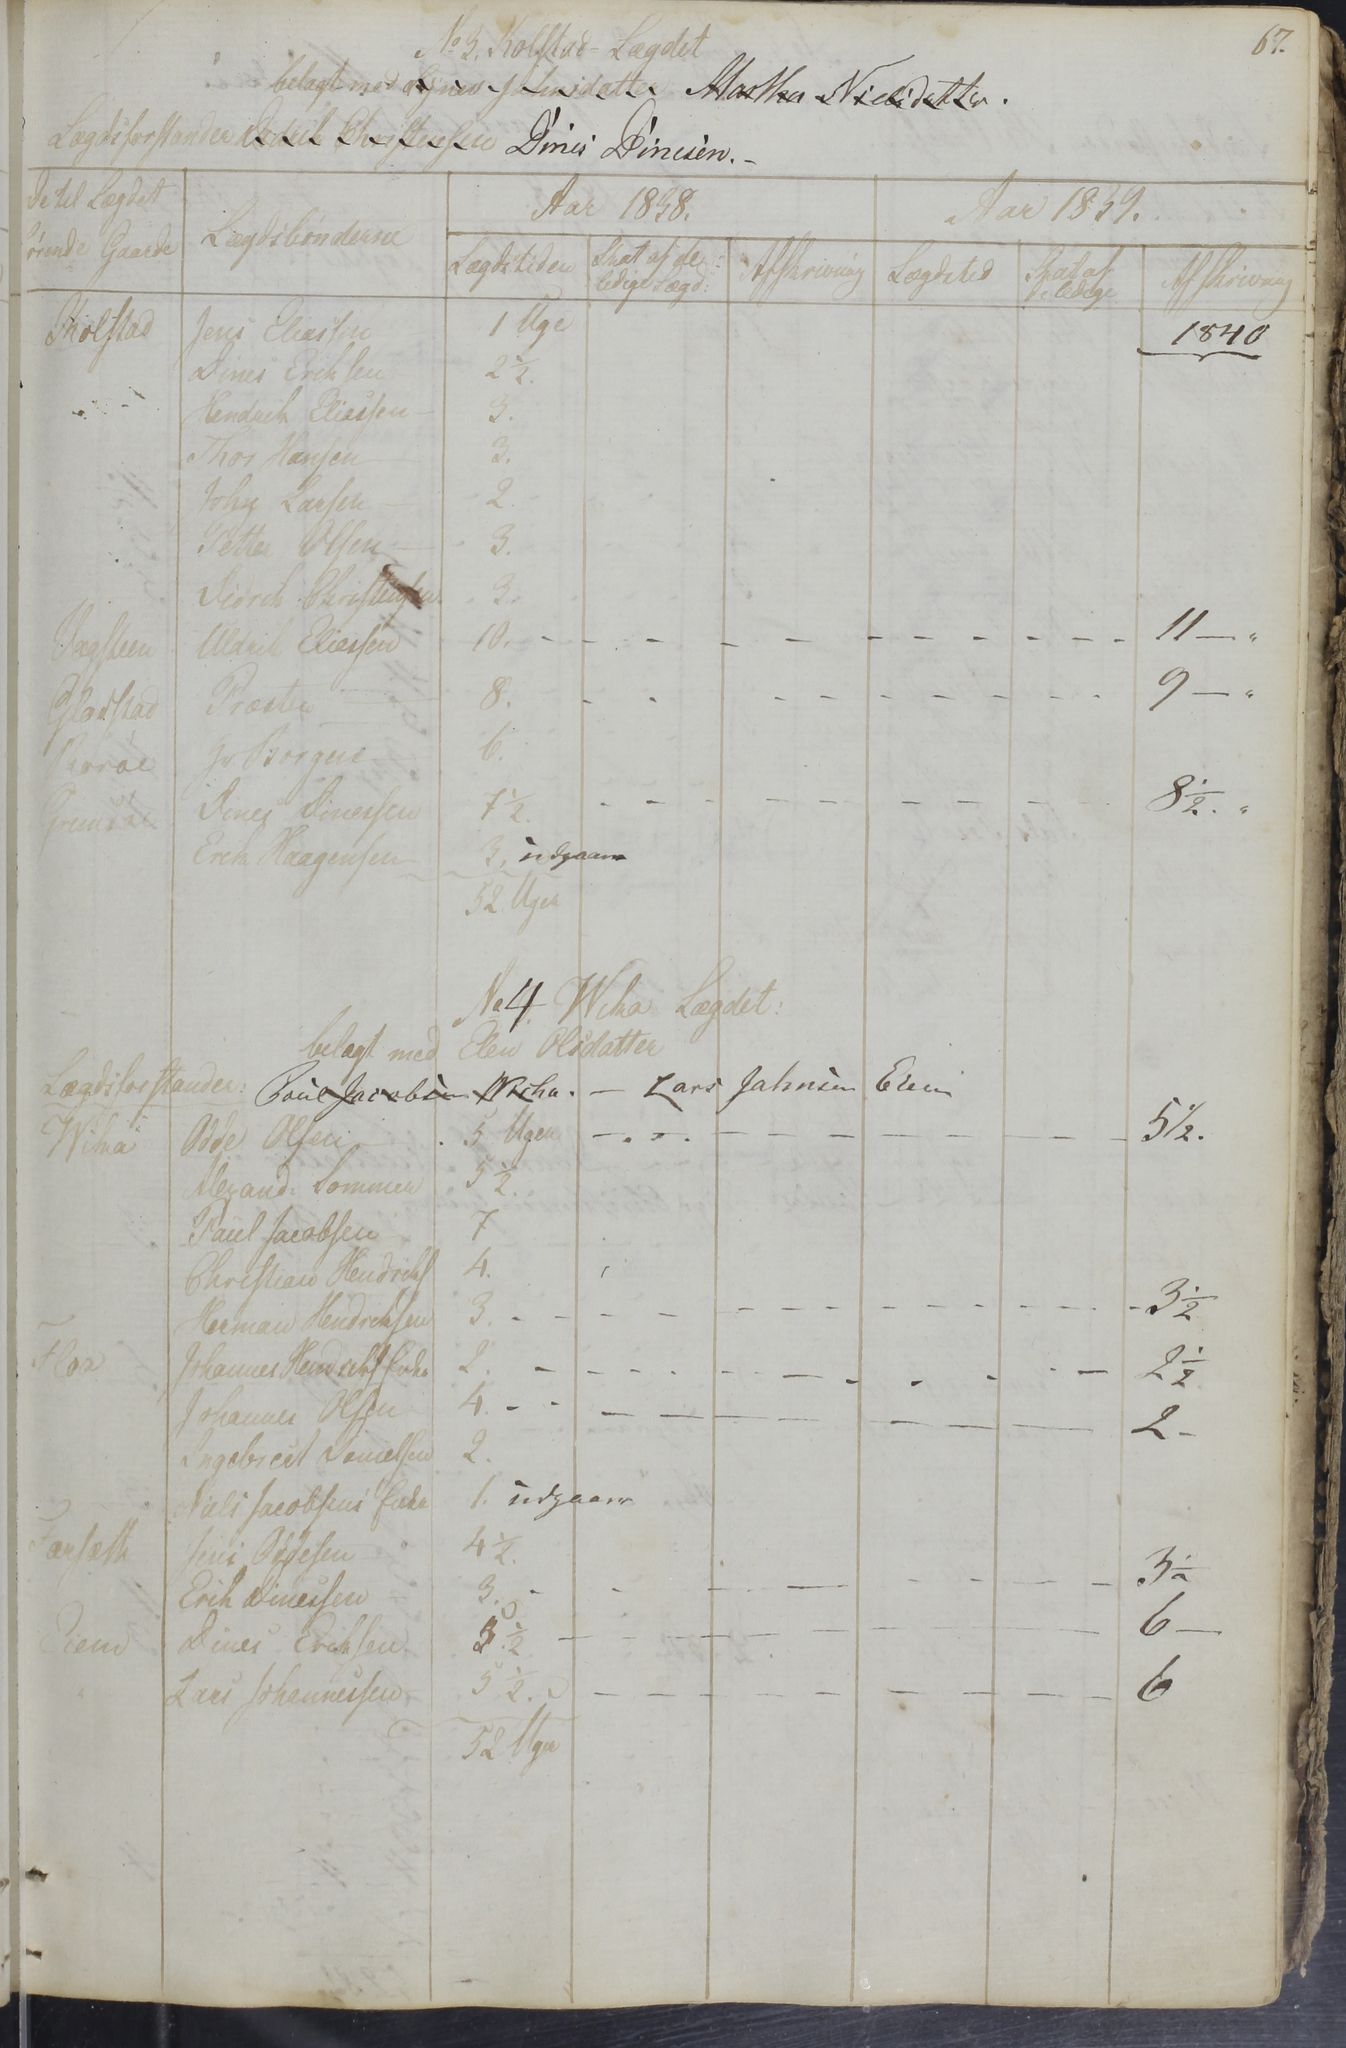 67.
No 3. Kolstad-Lægdet
belagt med Johnsdatter Martha Nielsdatter.
Lægdsforstander Didrik Christensen Dines Dinesen.-
De til Lægdet hørende Gaarde | Lægdsbønderne | Aar 1838. | Aar 1839.
Lægdstiden | Skat af de ledige Lægd: | Afskrivning | Lægdsted | Skat af de ledige | Afskrivning
Kolstad Jens Eliassen 1 Uge 1840
Dines Erichsen 2½.
Hendrich Eliassen 3.
Thor Hansen 3.
John Larsen 2
Petter Olsen 3.
Didrich Christensen 3.
Vagsteen Uldrik Eliassen 10. - - - - - - - - 11 — "
Gladstad Præsten 8. - - - - - - - - 9 — "
Borgen 6.
Dines Dinessen 7½. - - - - - - - 8½. "
Erich Haagensen 3. udgaar
52 Uger
No 4 Wiha Lægdet:
belagt med Elen Olsdatter
Lægdsforstander: Poul Jacobsen Wiha. — Lars Jahnsen Eiem
Wiha Odde Olsen 5 Uger - - - - - - - 5½.
Alexand: Sommer 5½.
Paul Jacobsen 7
Christian Hendrichs 4.
Herman Hendrichsen 3. - - - - - - - 3½
Flor Johannes Hendrichs Enke 2. - - - - - - - 2½
Johannes Olsen 4. - - - - - - - 2 -
Ingebregt Danielsen 2.
Niels Jacobsens Enke 1. udgaar
Farseth Jens Oddesen 4½.
Erich Dinessen 3. - - - - - - 3½
Eiem Dines Erichsen 5½ - - - - - - 6 —
Lars Johannessen 5½. - - - - - - 6
52 Uger